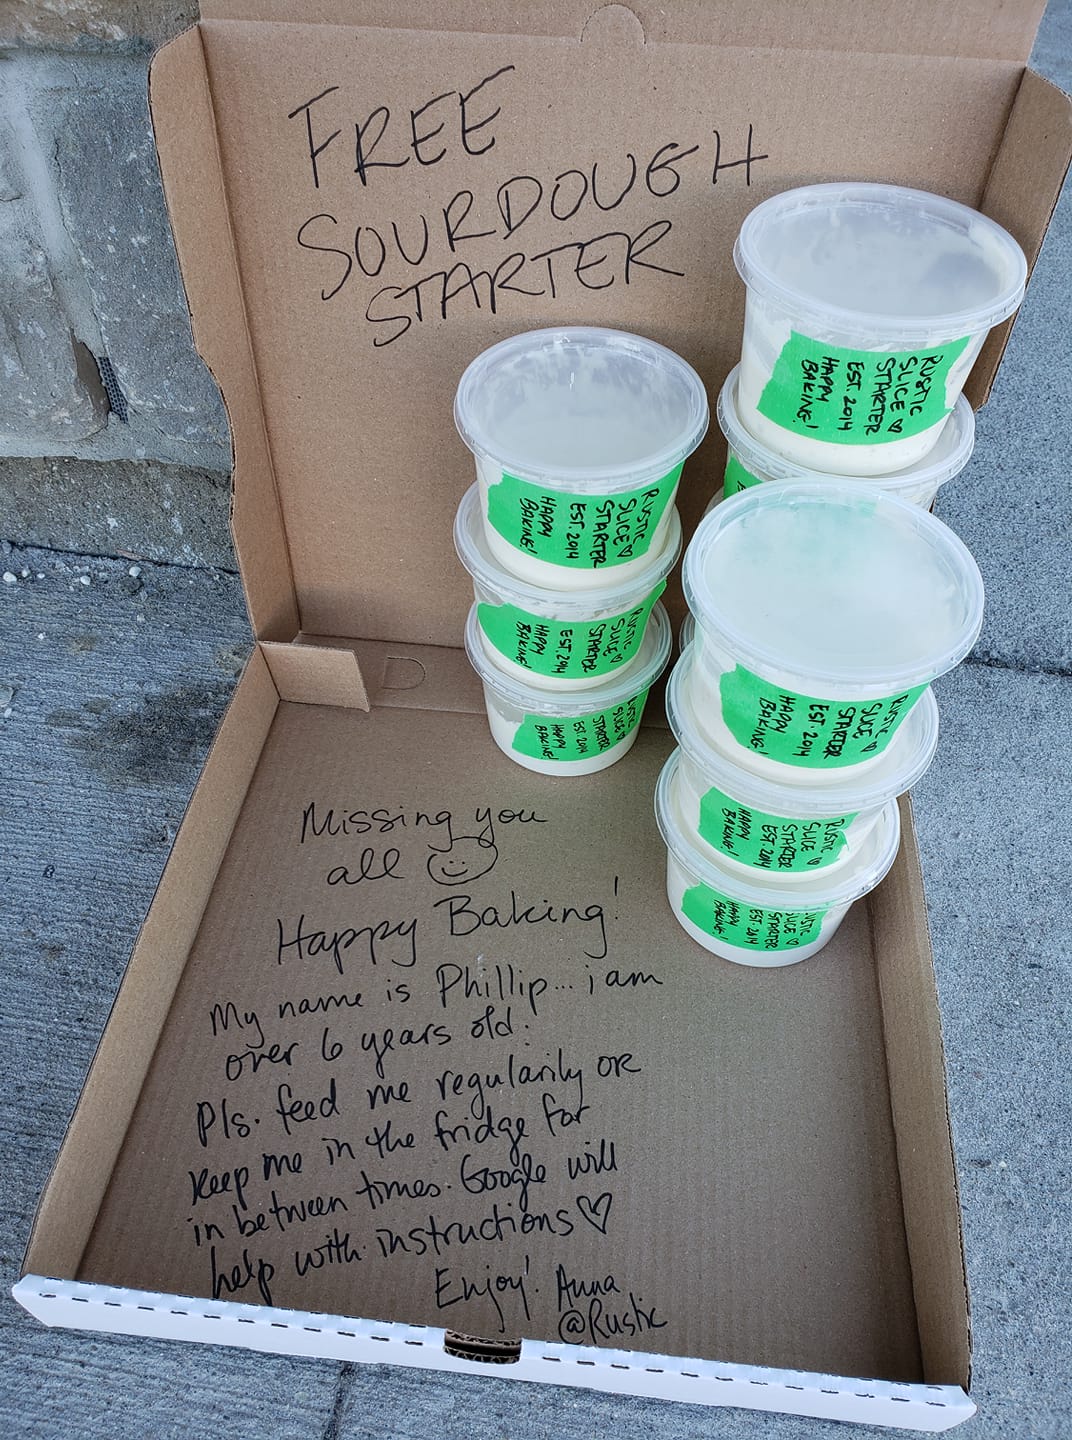 FREE
SOURDOUGH
STARTER
RUSTIC
SLICE ♡
STARTER
EST. 2014
HAPPY
BAKING!
RUSTIC
SLICE ♡
STARTER
EST. 2014
HAPPY
BAKING!
RUSTIC
SLICE ♡
STARTER
EST. 2014
HAPPY
BAKING!
RUSTIC
SLICE ♡
STARTER
EST. 2014
HAPPY
BAKING!
RUSTIC
SLICE ♡
STARTER
EST. 2014
HAPPY
BAKING!
RUSTIC
SLICE ♡
STARTER
EST. 2014
HAPPY
BAKING!
RUSTIC
SLICE ♡
STARTER
EST. 2014
HAPPY
BAKING!
Missing you
all ☺
Happy Baking!
My name is Phillip... i am
over 6 years old.
Pls. feed me regularily or
keep me in the fridge for
in between times. Google will
help with instructions ♡
Enjoy! Anna
@Rustic